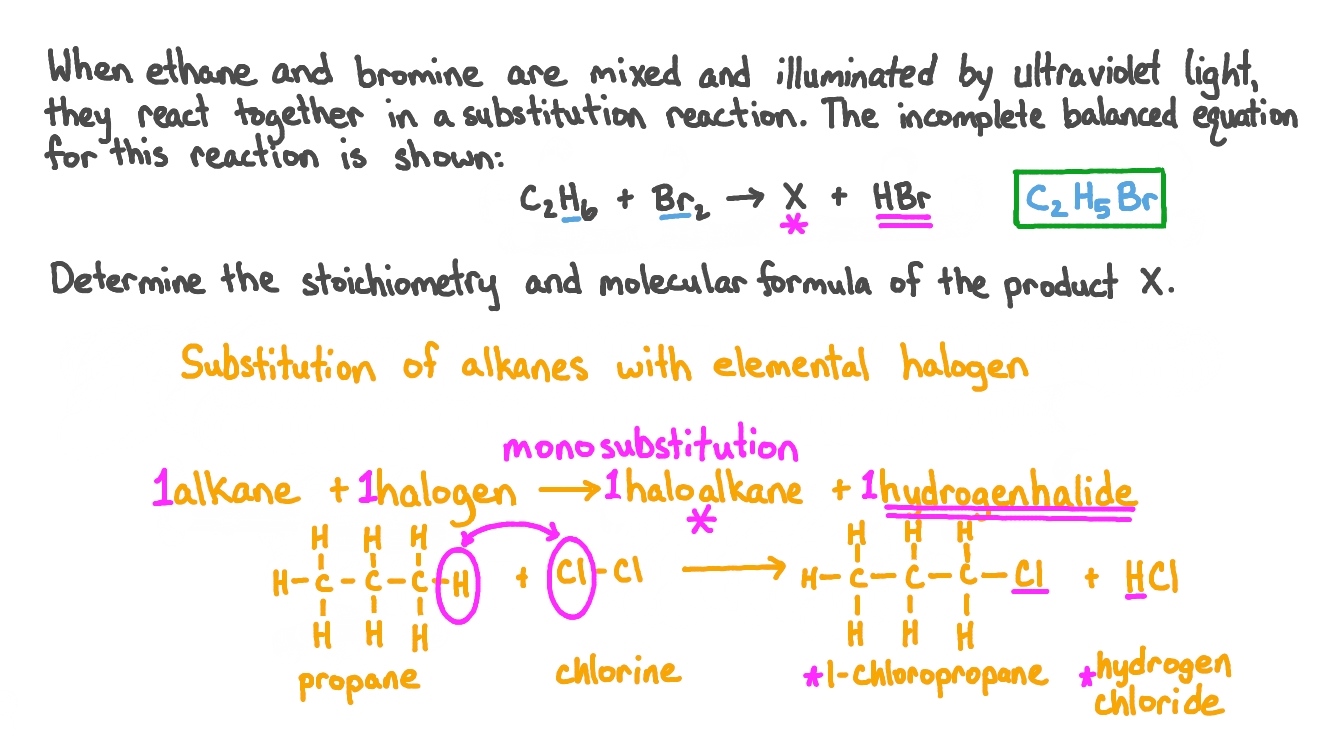 When ethane and bromine are mixed and illuminated by ultraviolet light,
they react together in a substitution reaction. The incomplete balanced equation
for this reaction is shown:
C₂H₆ + Br₂ → X + HBr C₂H₅Br
*
Determine the stoichiometry and molecular formula of the product X.
Substitution of alkanes with elemental halogen
monosubstitution
1 alkane + 1 halogen → 1 haloalkane + 1 hydrogen halide
*
H H H H H H
H-C-C-C-H + Cl-Cl → H-C-C-C-Cl + HCl
H H H H H H
propane chlorine *1-chloropropane *hydrogen
chloride